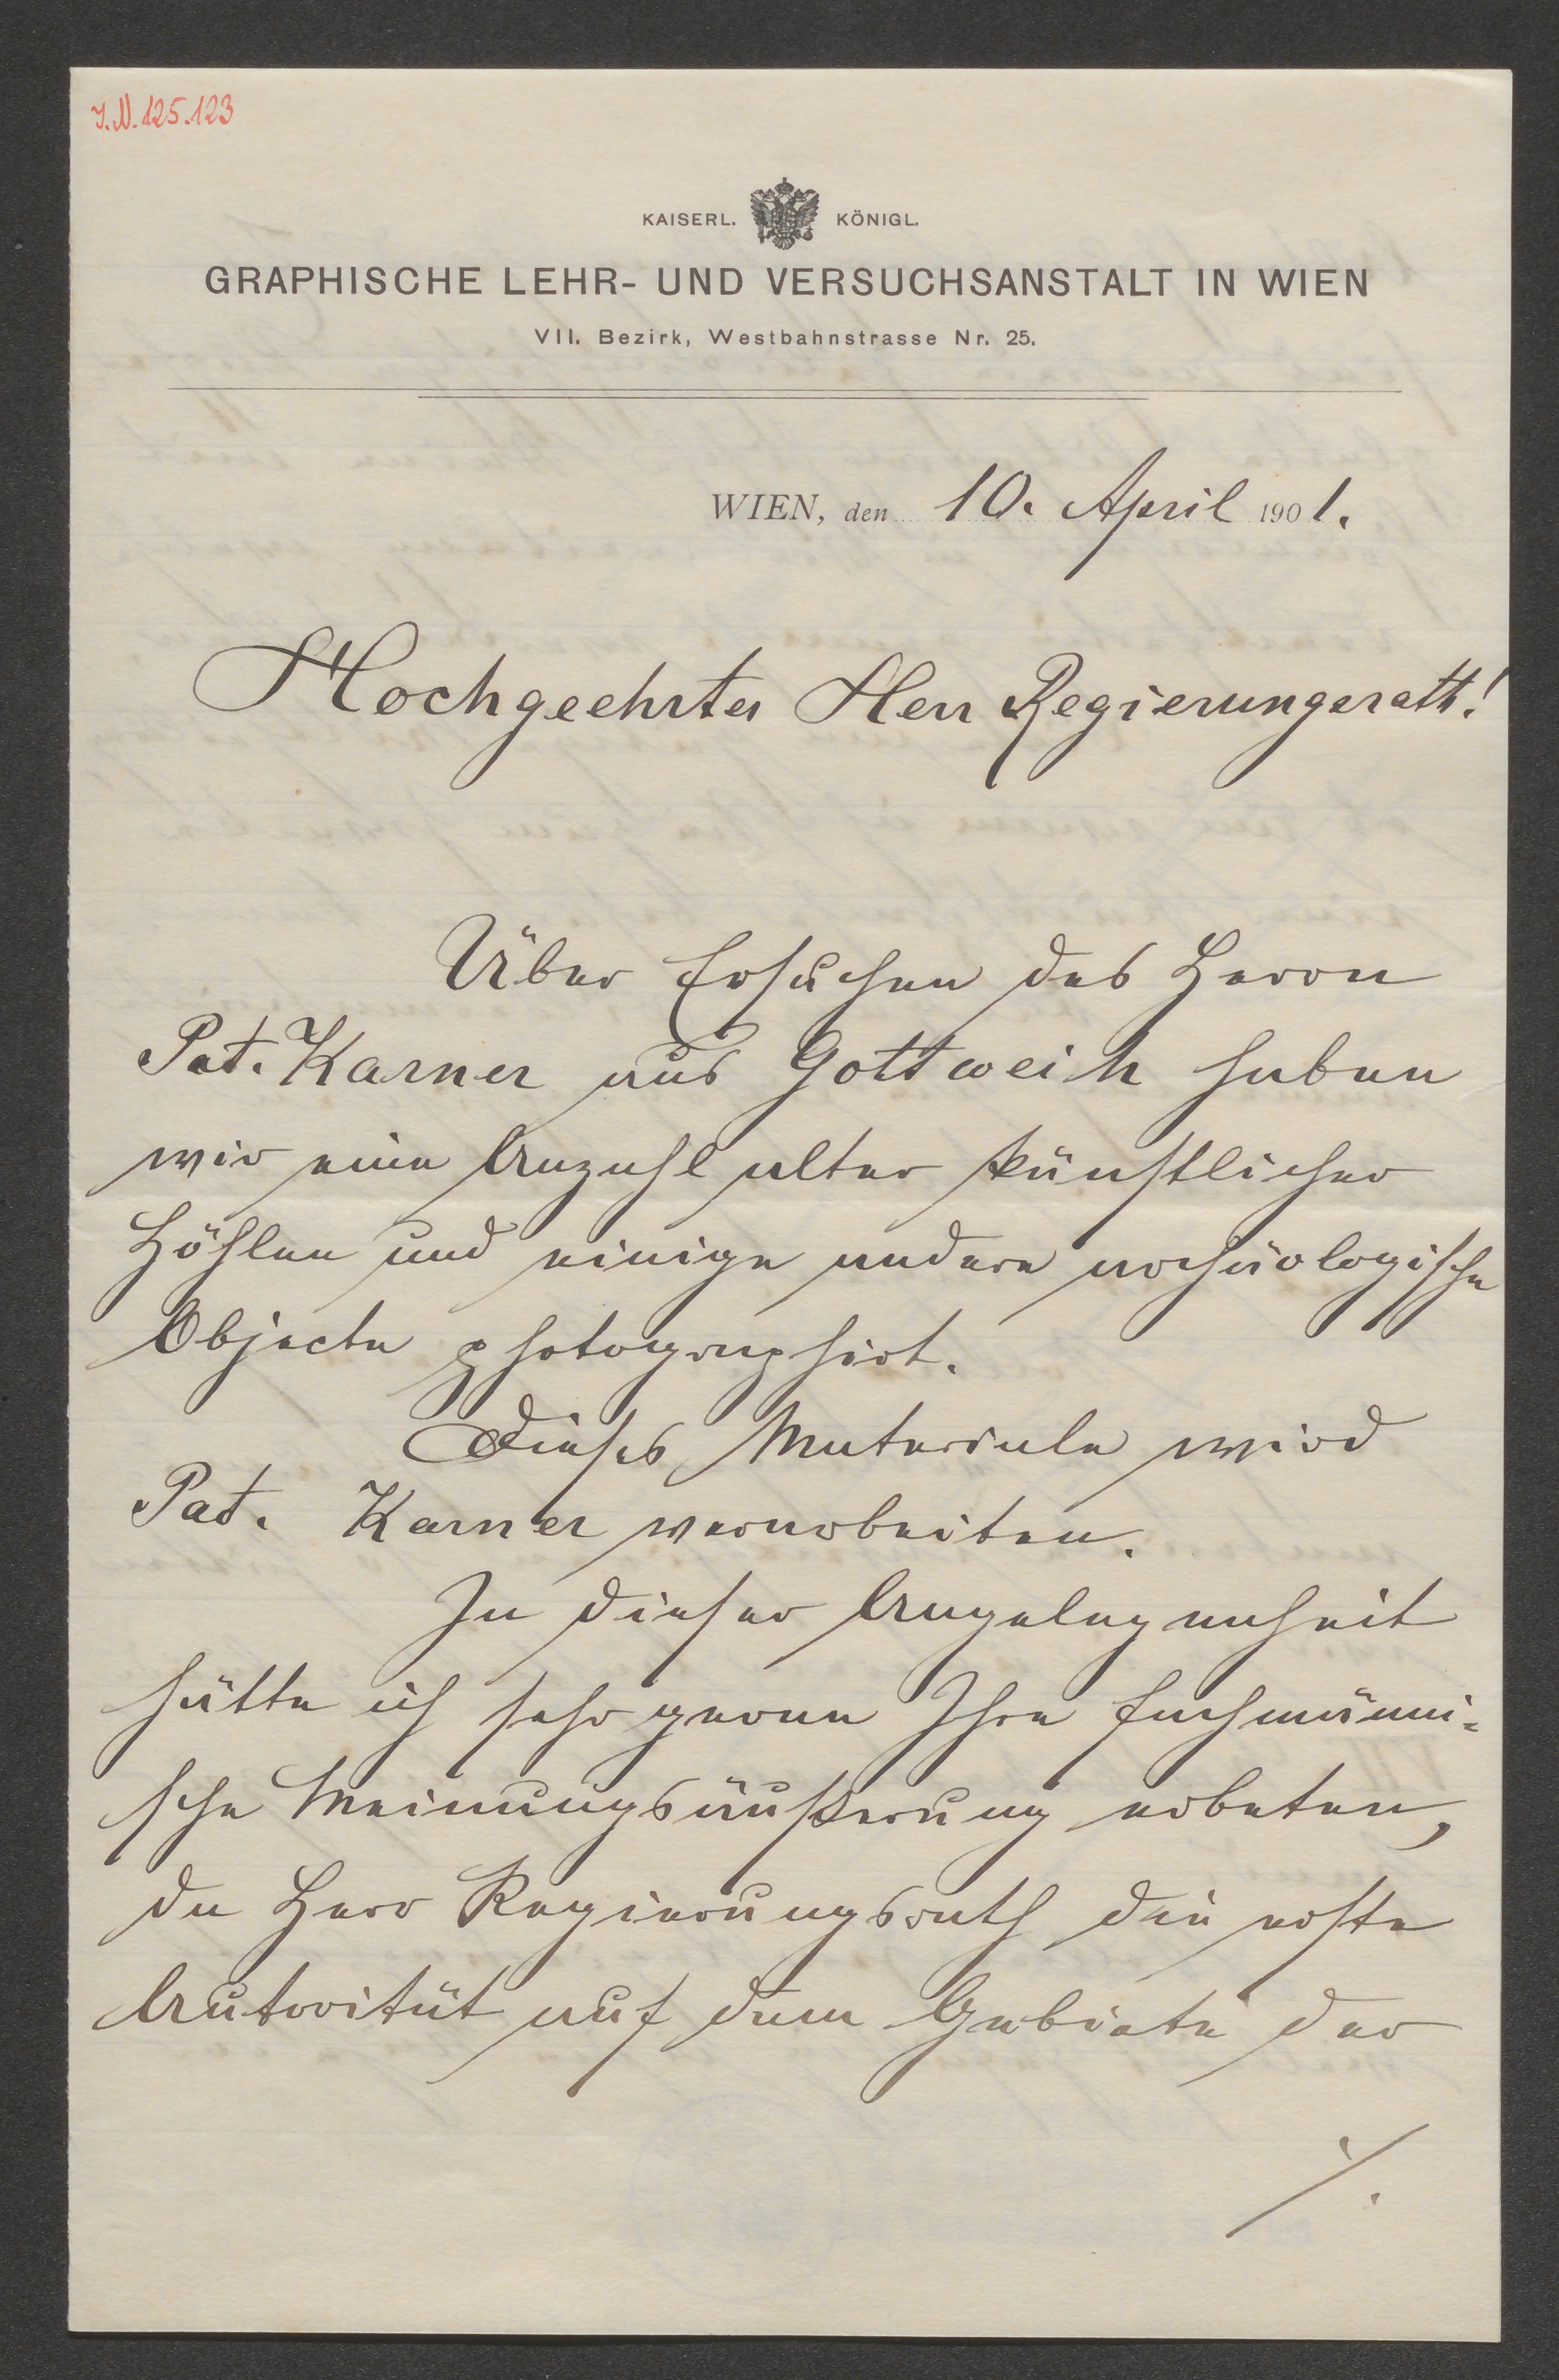 J.N. 125.123
KAISERL. KÖNIGL.
GRAPHISCHE LEHR- UND VERSUCHSANSTALT IN WIEN
VII. Bezirk, Westbahnstrasse Nr. 25.
WIEN, den 10. April 1901.
Hochgeehrter Herr Regierungsrath!
Über Ersuchen des Herrn
Pat. Karner aus Gottweih haben
wir eine Anzahl alter künstlicher
Höhlen und einige andere archäologische
Objecte photographirt.
Dieses Materiale wird
Pat. Karner verarbeiten.
In dieser Angelegenheit
hätte ich sehr gerne Ihre fachmänni-
sche Meinungsäußerung erbeten,
da Herr Regierungsrath die erste
Autorität auf dem Gebiete der
./.